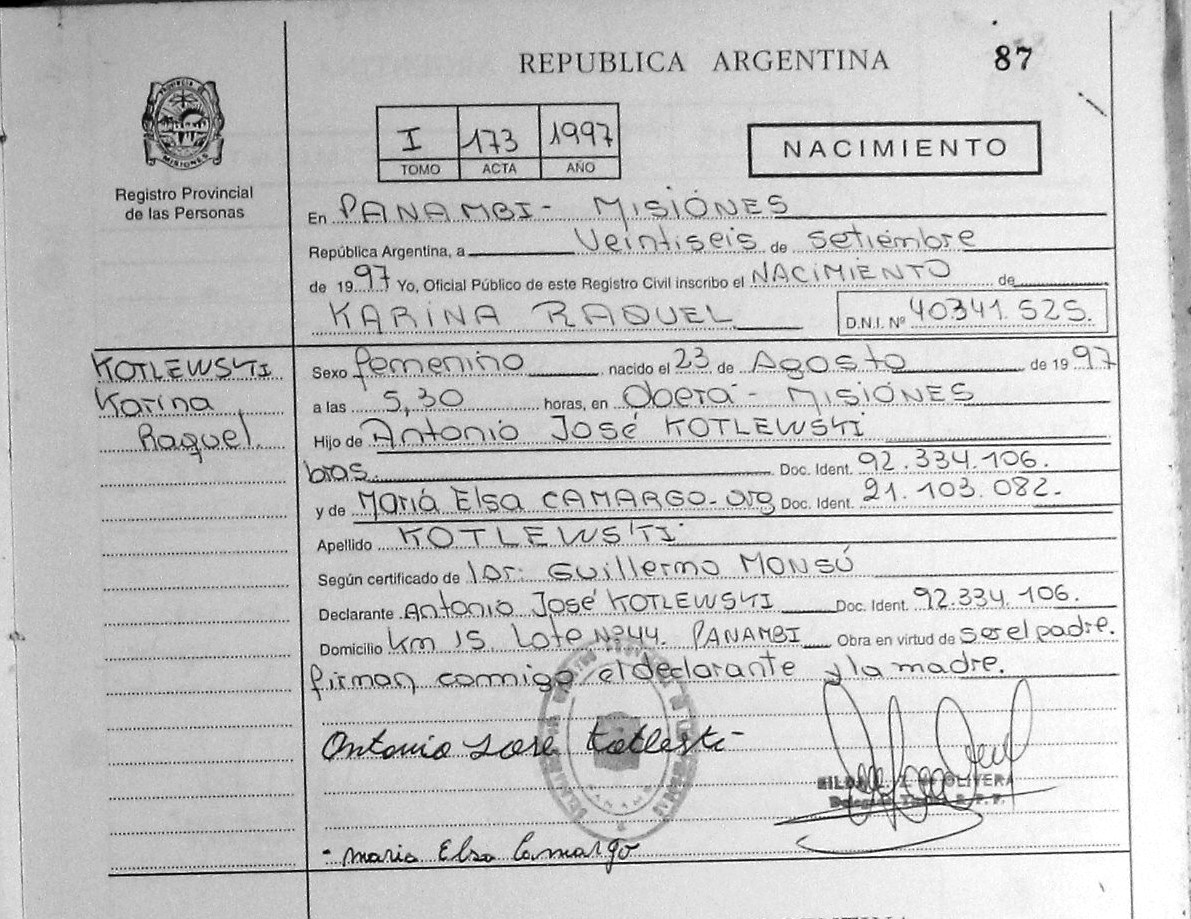 REPUBLICA ARGENTINA 87
PROVINCIA DE MISIONES
Registro Provincial
de las Personas
I 173 1997
TOMO ACTA AÑO
NACIMIENTO
En PANAMBI - MISIÓNES
República Argentina, a Veintiseis de setiembre
de 1997 Yo, Oficial Público de este Registro Civil inscribo el NACIMIENTO de
KARINA RAQUEL D.N.I. Nº 40341.525.
KOTLEWSKI
Karina
Raquel.
Sexo femenino nacido el 23 de Agosto de 1997
a las 5,30 horas, en Oberá - MISIÓNES
Hijo de Antonio José KOTLEWSKI
bras. Doc. Ident. 92.334.106.
y de Mariá Elsa CAMARGO - arg Doc. Ident. 21.103.082.-
Apellido KOTLEWSKI
Según certificado de Guillermo MONSÚ
Declarante Antonio José KOTLEWSKI Doc. Ident. 92.334.106.
Domicilio Km 15 Lote Nº 44. PANAMBI Obra en virtud de ser el padre.
firman conmigo el declarante y la madre.
Antonio José Kotleski
OLIVERA
- Maria Elsa Camargo